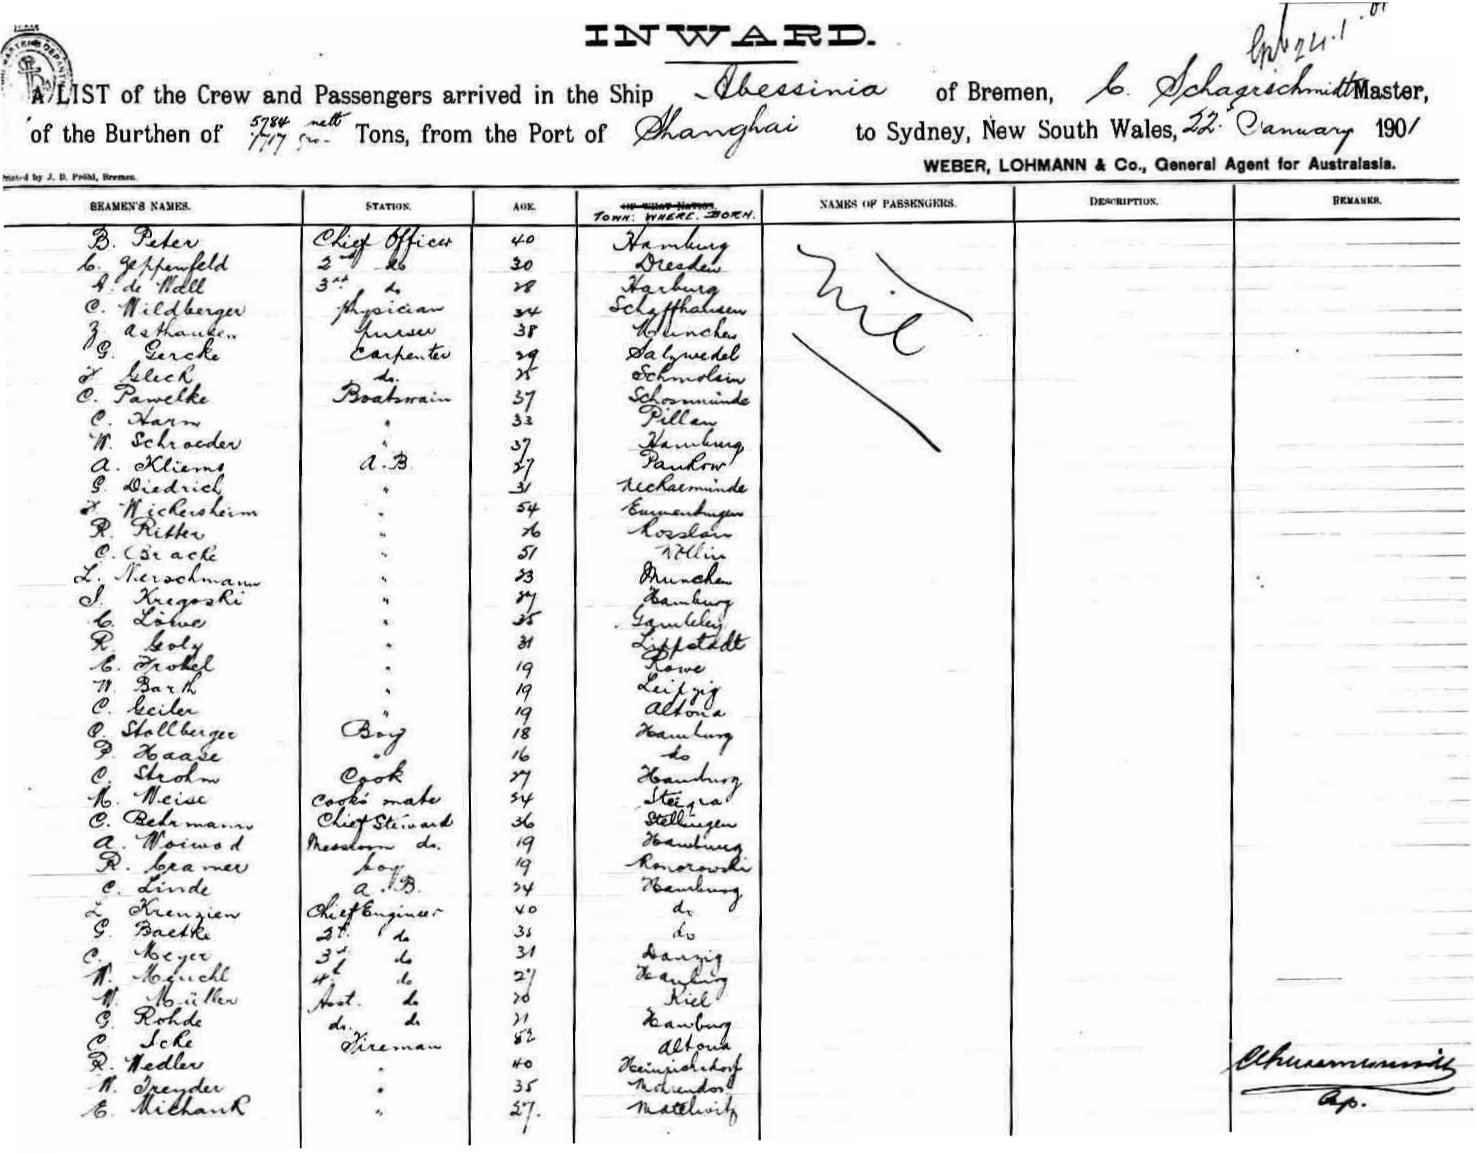 INWARD.
A LIST of the Crew and Passengers arrived in the Ship Abessinia of Bremen, C. Schaerschmidt Master,
of the Burthen of 5784 nett Tons, from the Port of Shanghai to Sydney, New South Wales, 22. January 1901
WEBER, LOHMANN & Co., General Agent for Australasia.
Printed by J. D. Pröhl, Bremen.
SEAMEN'S NAMES. STATION. AGE. OF WHAT NATION. NAMES OF PASSENGERS. DESCRIPTION. REMARKS.
TOWN: WHERE. BORN.
B. Peter Chief Officer 40 Hamburg
C. Zeppenfeld 2nd do 30 Dresden
A. de Wall 3rd do 28 Harburg
Nil
C. Wildberger physician 34 Schaffhausen
Z Asthausen purser 38 Muenchen
G. Gercke Carpenter 29 Salzwedel
F Gleck do. 25 Schmolsin
C. Pawelke Boatswain 37
C. Harm " 33 Pillau
W. Schroeder " 37 Hamburg
A. Kliems A.B. 27 Pankow
G. Diedrich " 31 Ueckermünde
F Wickersheim " 54
R. Ritter " 26 Rosslau
C. Bracke " 51 Wollin
L. Nerschmann " 23 Munchen
J. Kregoski " 27 Hamburg
C. Löwe " 35
R. Goly " 31 Lippstadt
C. Frobel " 19 Rowe
W. Barth " 19 Leipzig
C. Geiler " 19 Altona
C. Stollberger Boy 18 Hamburg
P. Haase " 16 do
C. Strohm Cook 27 Hamburg
M. Weise Cook's mate 24 Steigra
C. Behrmann Chief Steward 36 Stellingen
A. Woiwod Messroom do. 19 Hamburg
R. Cramer boy 19 Konorowski
C. Linde A.B. 24 Hamburg
L Krenzien Chief Engineer 40 do
G. Baetke 2d. do 35 do
C. Meyer 3rd do 31 Danzig
W. Meuchl 4th do 27 Hamburg
W. Müller Asst. do 20 Kiel
G. Rohde do. do 21 Hamburg
C Icke Fireman 52 Altona
R. Wedler " 40 Heinrichsdorf
W. Treyder " 35
E. Michank " 27.